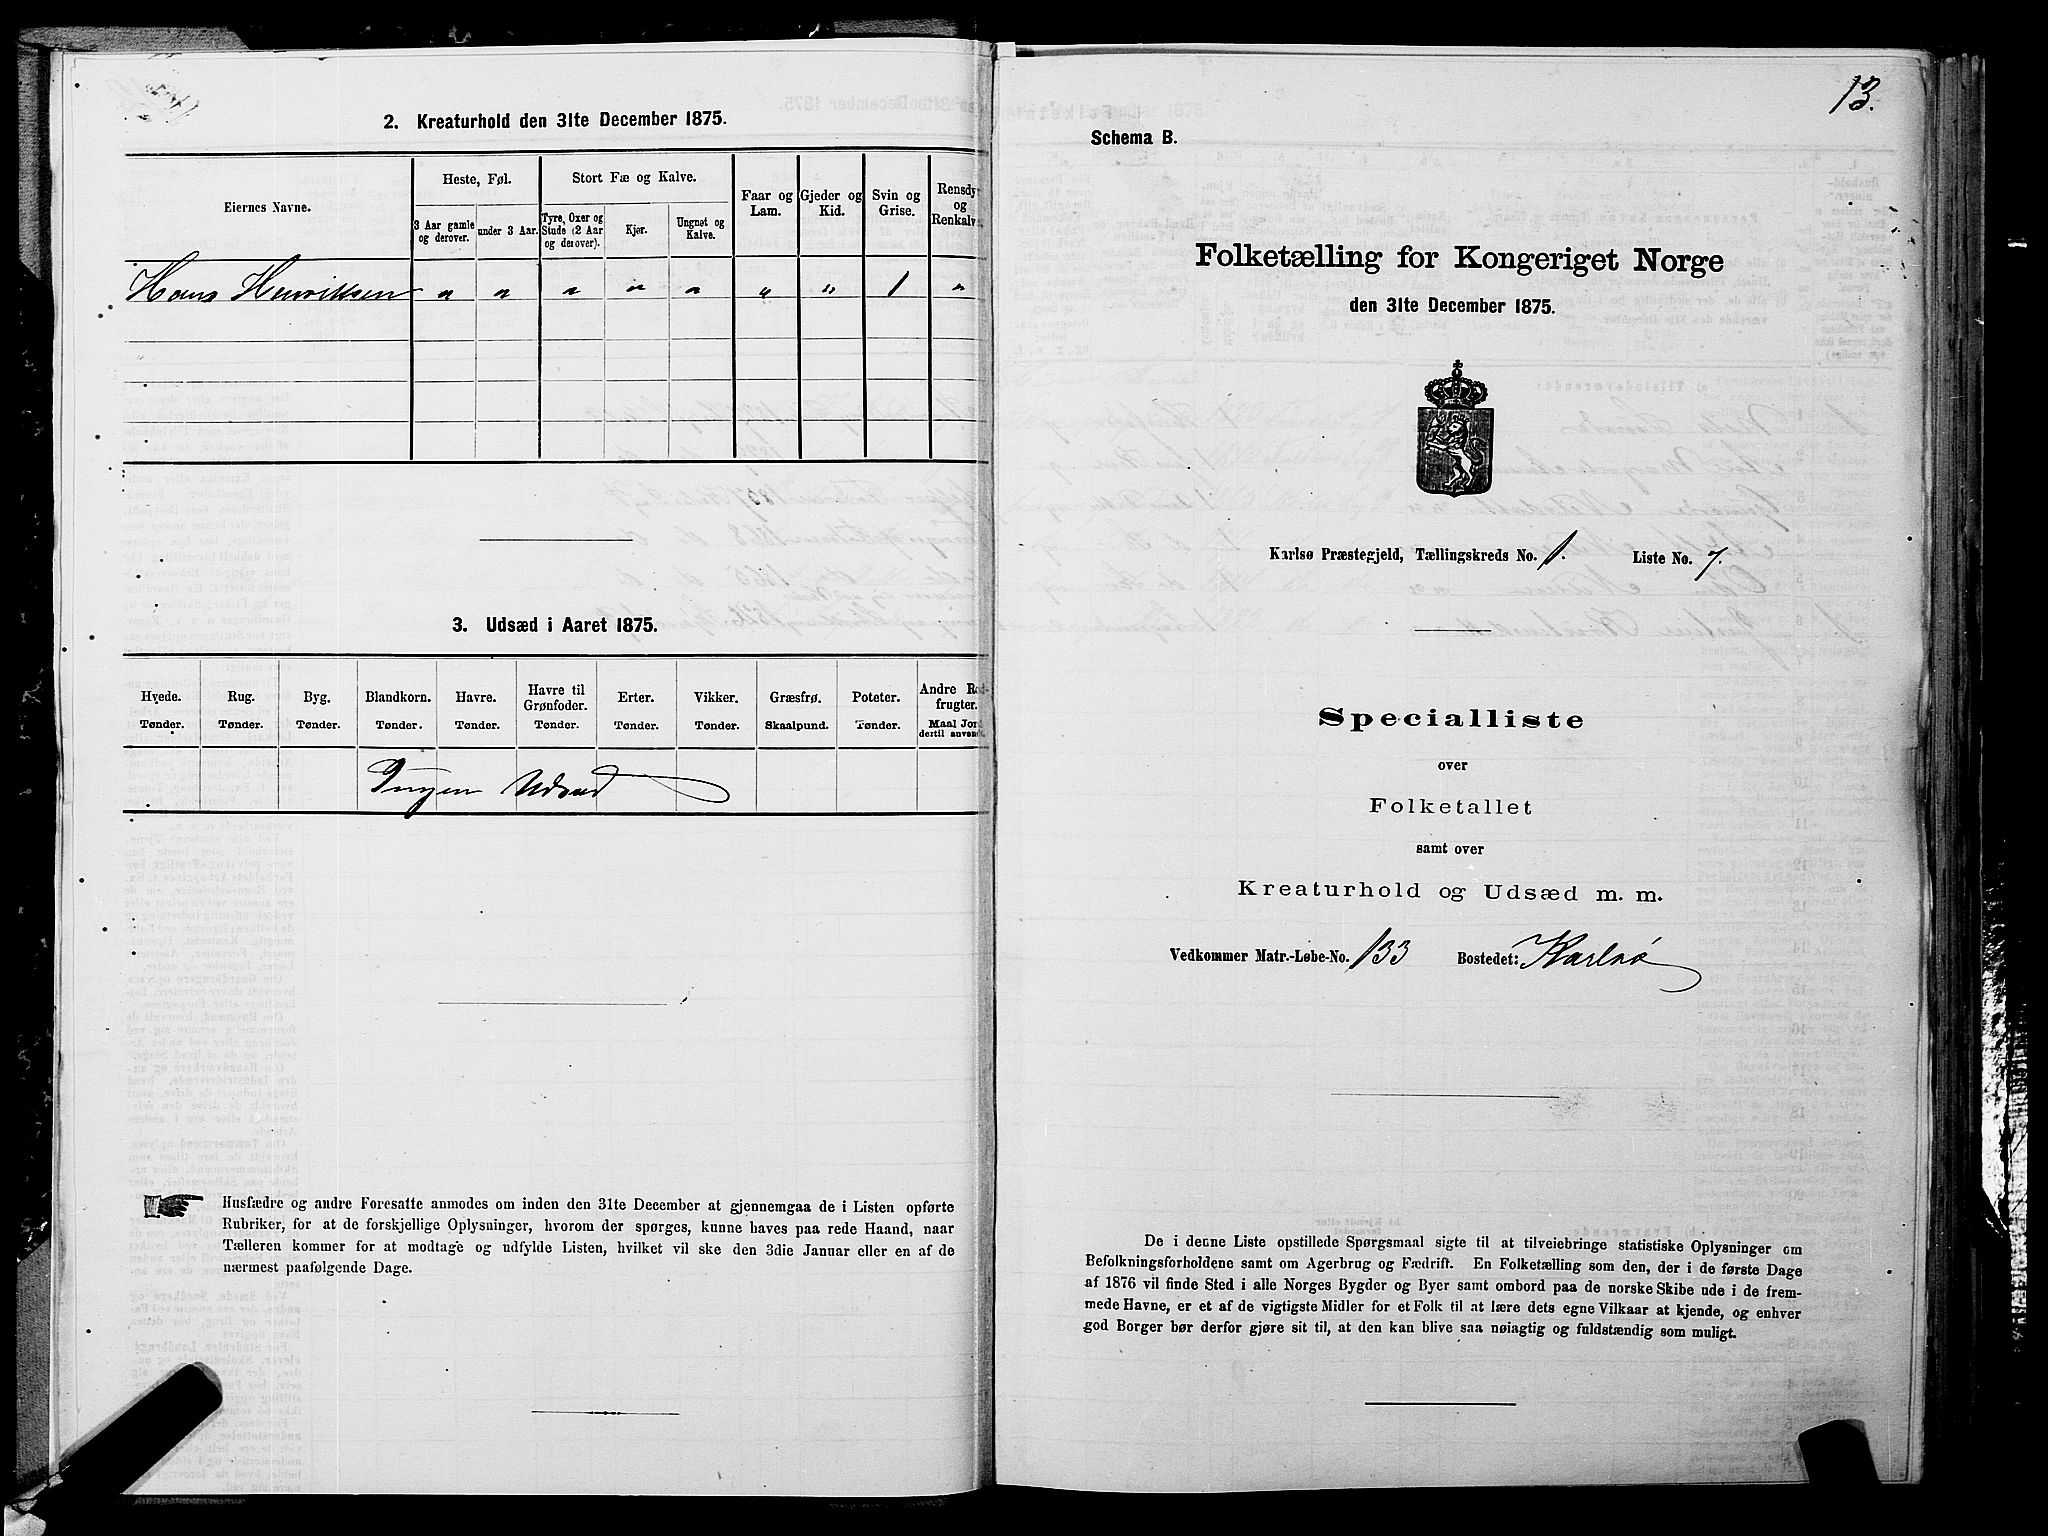 2. Kreaturhold den 31te December 1875.
Eiernes Navne.
Heste, Føl.
Stort Fæ og Kalve.
3 Aar gamle og derover.
under 3 Aar.
Tyre, Oxer og Stude (2 Aar og derover).
Kjør.
Ungnøt og Kalve.
Faar og Lam.
Gjeder og Kid.
Svin og Grise.
Rensdyr og Renkalve
Hans Henriksen " " " " " " " 1 "
3. Udsæd i Aaret 1875.
Hvede. Rug. Byg. Blandkorn. Havre. Havre til Grønfoder. Erter. Vikker. Græsfrø. Poteter. Andre Rodfrugter.
Tønder. Tønder. Tønder. Tønder. Tønder. Tønder. Tønder. Tønder. Skaalpund. Tønder. Maal Jord dertil anvendt.
Ingen Udsæd
Husfædre og andre Foresatte anmodes om inden den 31te December at gjennemgaa de i Listen opførte
Rubriker, for at de forskjellige Oplysninger, hvorom der spørges, kunne haves paa rede Haand, naar
Tælleren kommer for at modtage og udfylde Listen, hvilket vil ske den 3die Januar eller en af de
nærmest paafølgende Dage.
13.
Schema B.
Folketælling for Kongeriget Norge
den 31te December 1875.
Karlsø Præstegjeld, Tællingskreds No. 1. Liste No. 7.
Specialliste
over
Folketallet
samt over
Kreaturhold og Udsæd m. m.
Vedkommer Matr.-Løbe-No. 133 Bostedet: Karlsø
De i denne Liste opstillede Spørgsmaal sigte til at tilveiebringe statistiske Oplysninger om
Befolkningsforholdene samt om Agerbrug og Fædrift. En Folketælling som den, der i de første Dage
af 1876 vil finde Sted i alle Norges Bygder og Byer samt ombord paa de norske Skibe ude i de frem-
mede Havne, er et af de vigtigste Midler for et Folk til at lære dets egne Vilkaar at kjende, og enhver
god Borger bør derfor gjøre sit til, at den kan blive saa nøiagtig og fuldstændig som muligt.